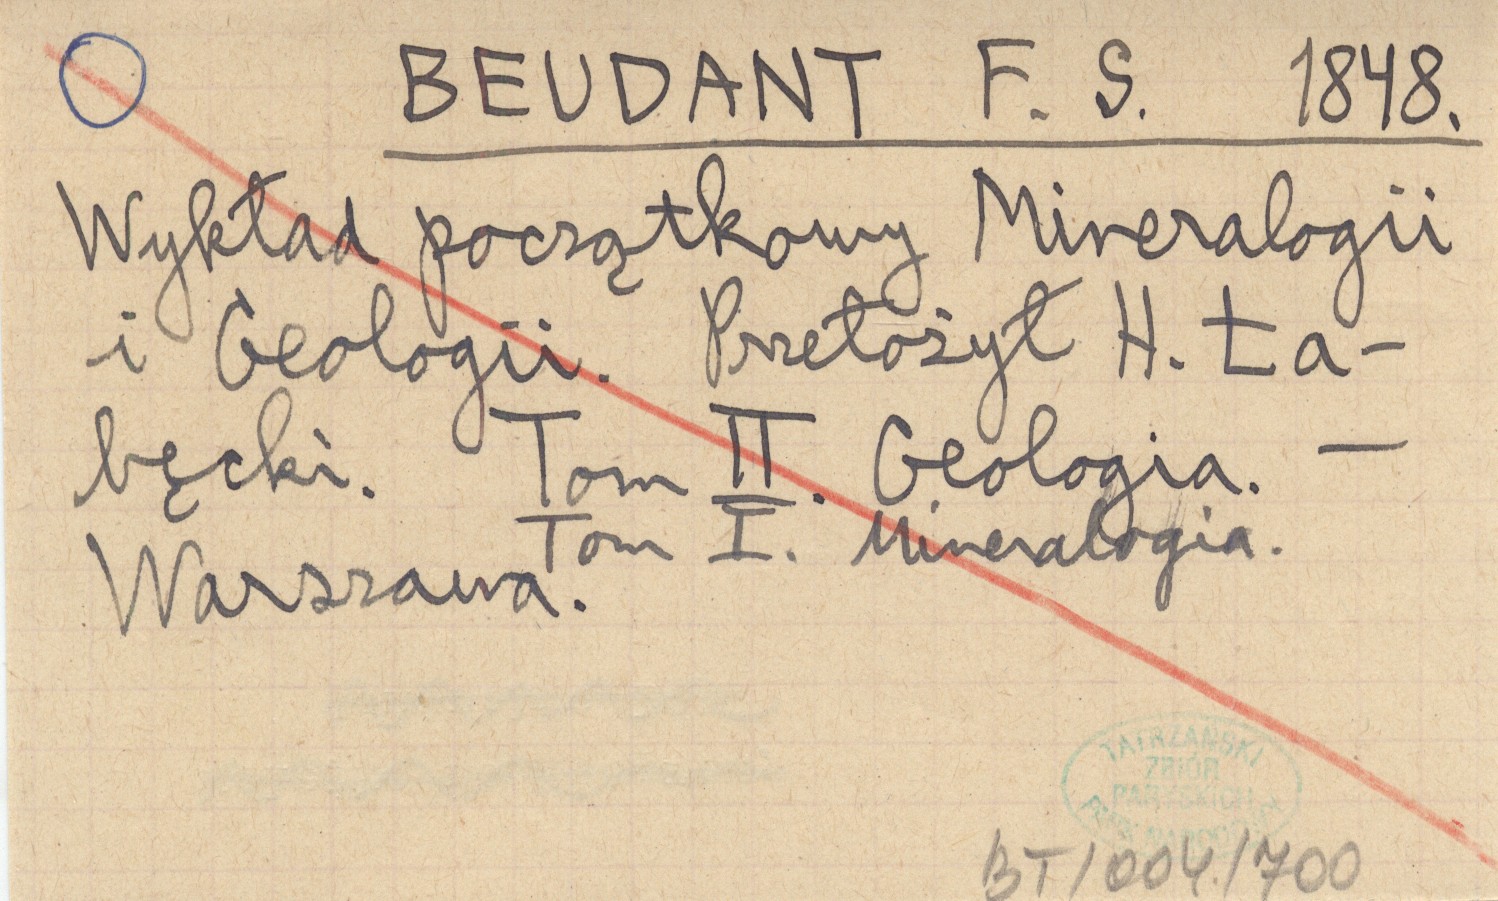 BEUDANT F. S. 1848.
Wykład początkowy Mineralogii
i Geologii. Przełożył H. Ła-
bęcki. Tom II. Geologia. —
Tom I. Mineralogia.
Warszawa.
TATRZAŃSKI
ZBIÓR
PARYSKICH
BT/004/700